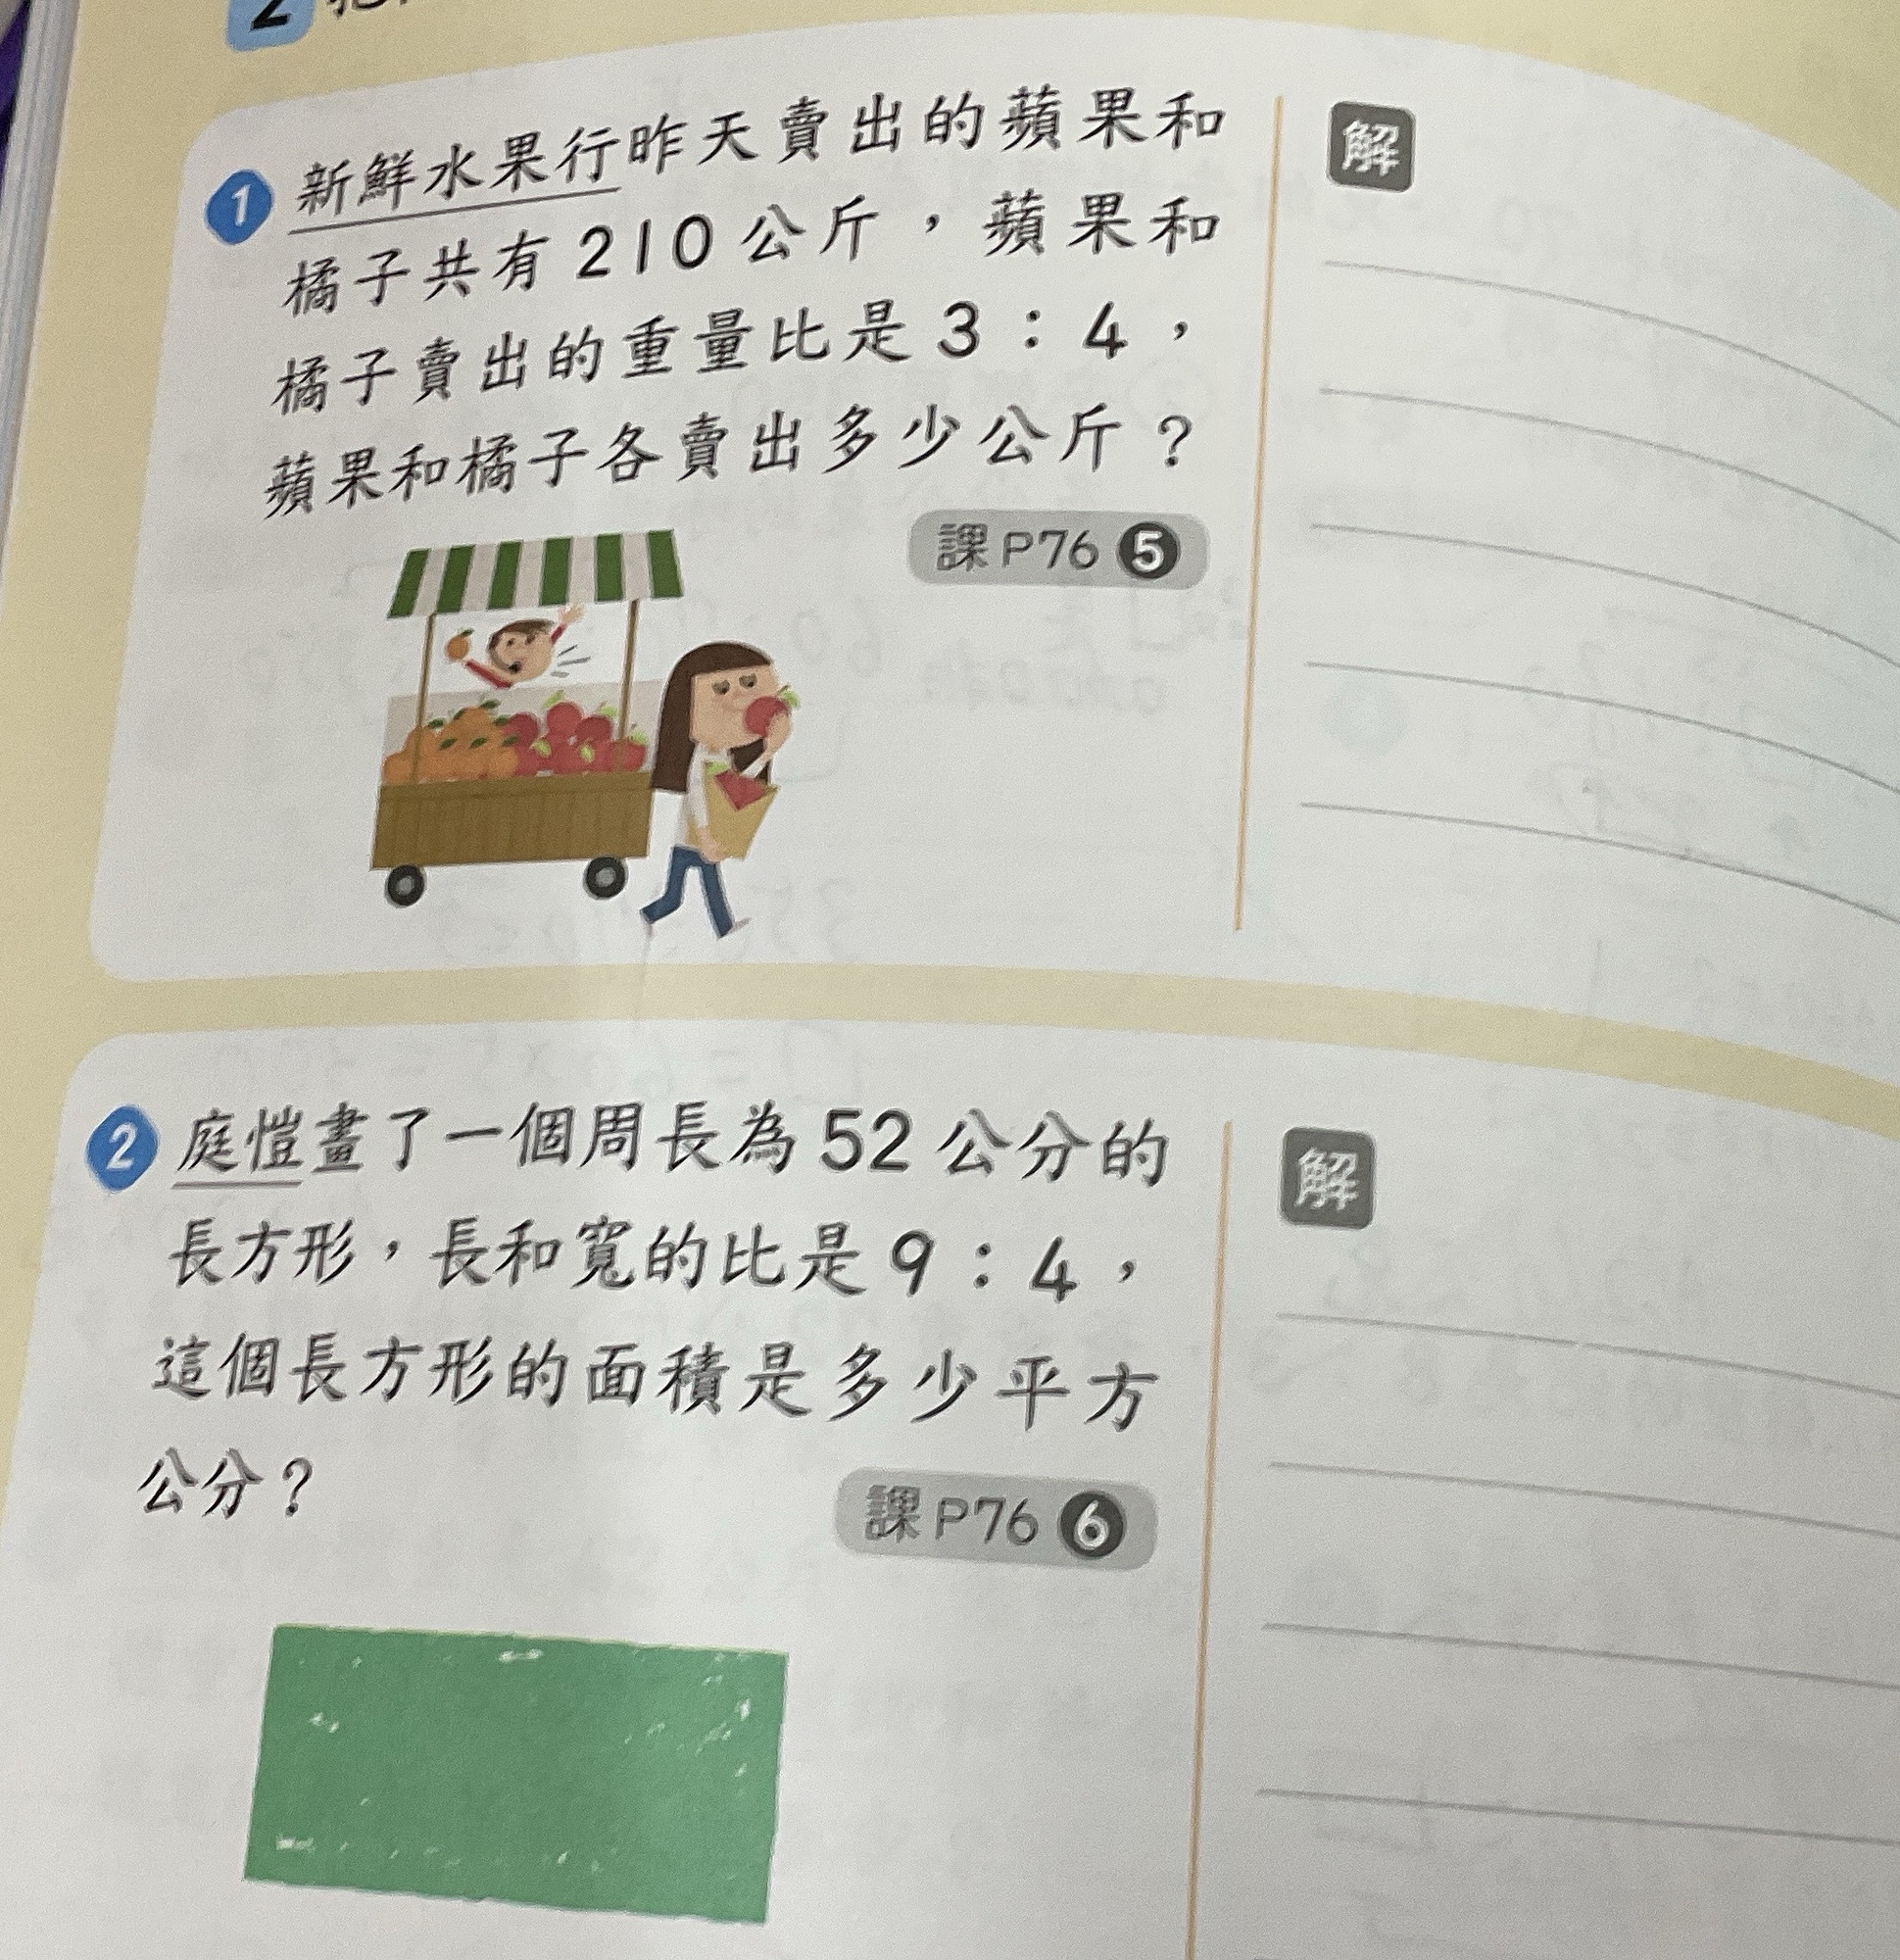 2
1 新鮮水果行昨天賣出的蘋果和
橘子共有210公斤，蘋果和
橘子賣出的重量比是3：4，
蘋果和橘子各賣出多少公斤？
課P76 5
解
2 庭愷畫了一個周長為52公分的
長方形，長和寬的比是9：4，
這個長方形的面積是多少平方
公分？
課P76 6
解